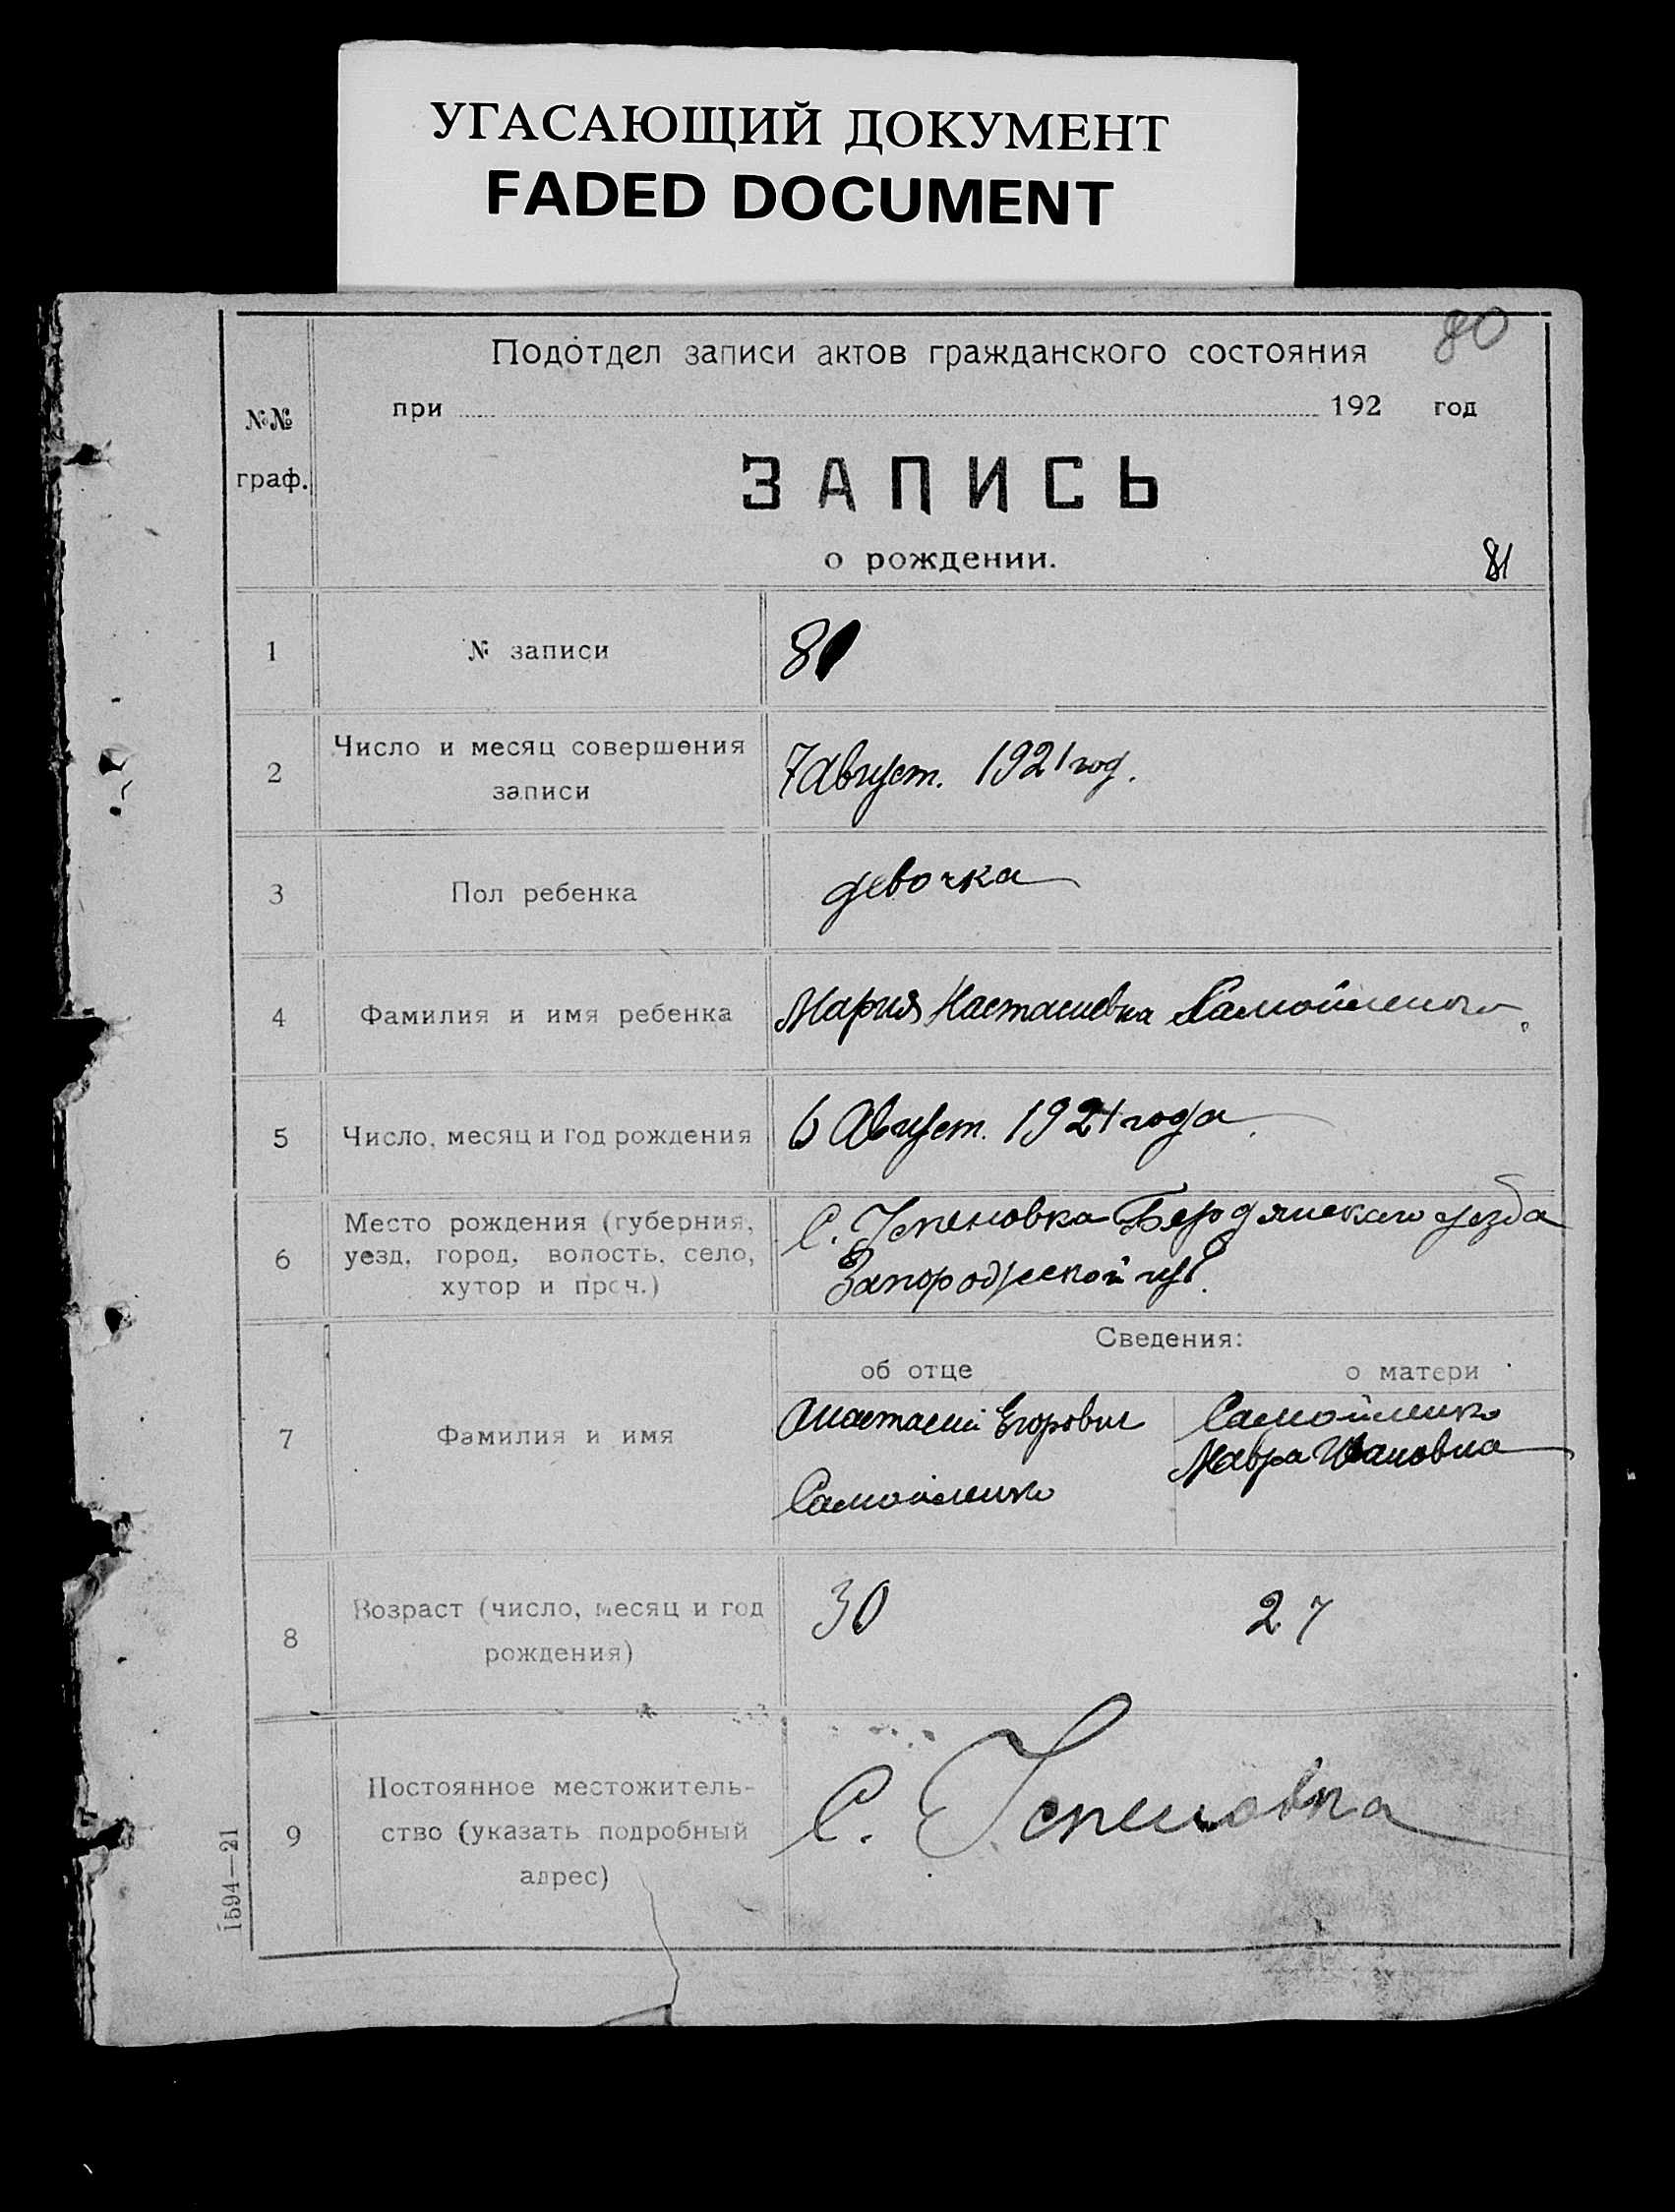 УГАСАЮЩИЙ ДОКУМЕНТ
FADED DOCUMENT
80
Подотдел записи актов гражданского состояния
при 192 год
№№
граф.
ЗАПИСЬ
о рождении.
81
1 № записи
8
2 Число и месяц совершения
записи
7 Август. 1921 год.
3 Пол ребенка
девочка
4 Фамилия и имя ребенка
Мария Настасиевна Самойленко
5 Число, месяц и год рождения
6 Август. 1921 года
6 Место рождения (губерния,
уезд, город, волость, село,
хутор и проч.)
С. Успеновка Бердянскаго уезда
Запорожской губ.
Сведения:
об отце о матери
7 Фамилия и имя
Анастасий Егорович
Самойленко
Самойленко
Мавра Ивановна
8 Возраст (число, месяц и год
рождения)
30 27
9 Постоянное местожитель-
ство (указать подробный
адрес)
С. Успеновка
1594—21